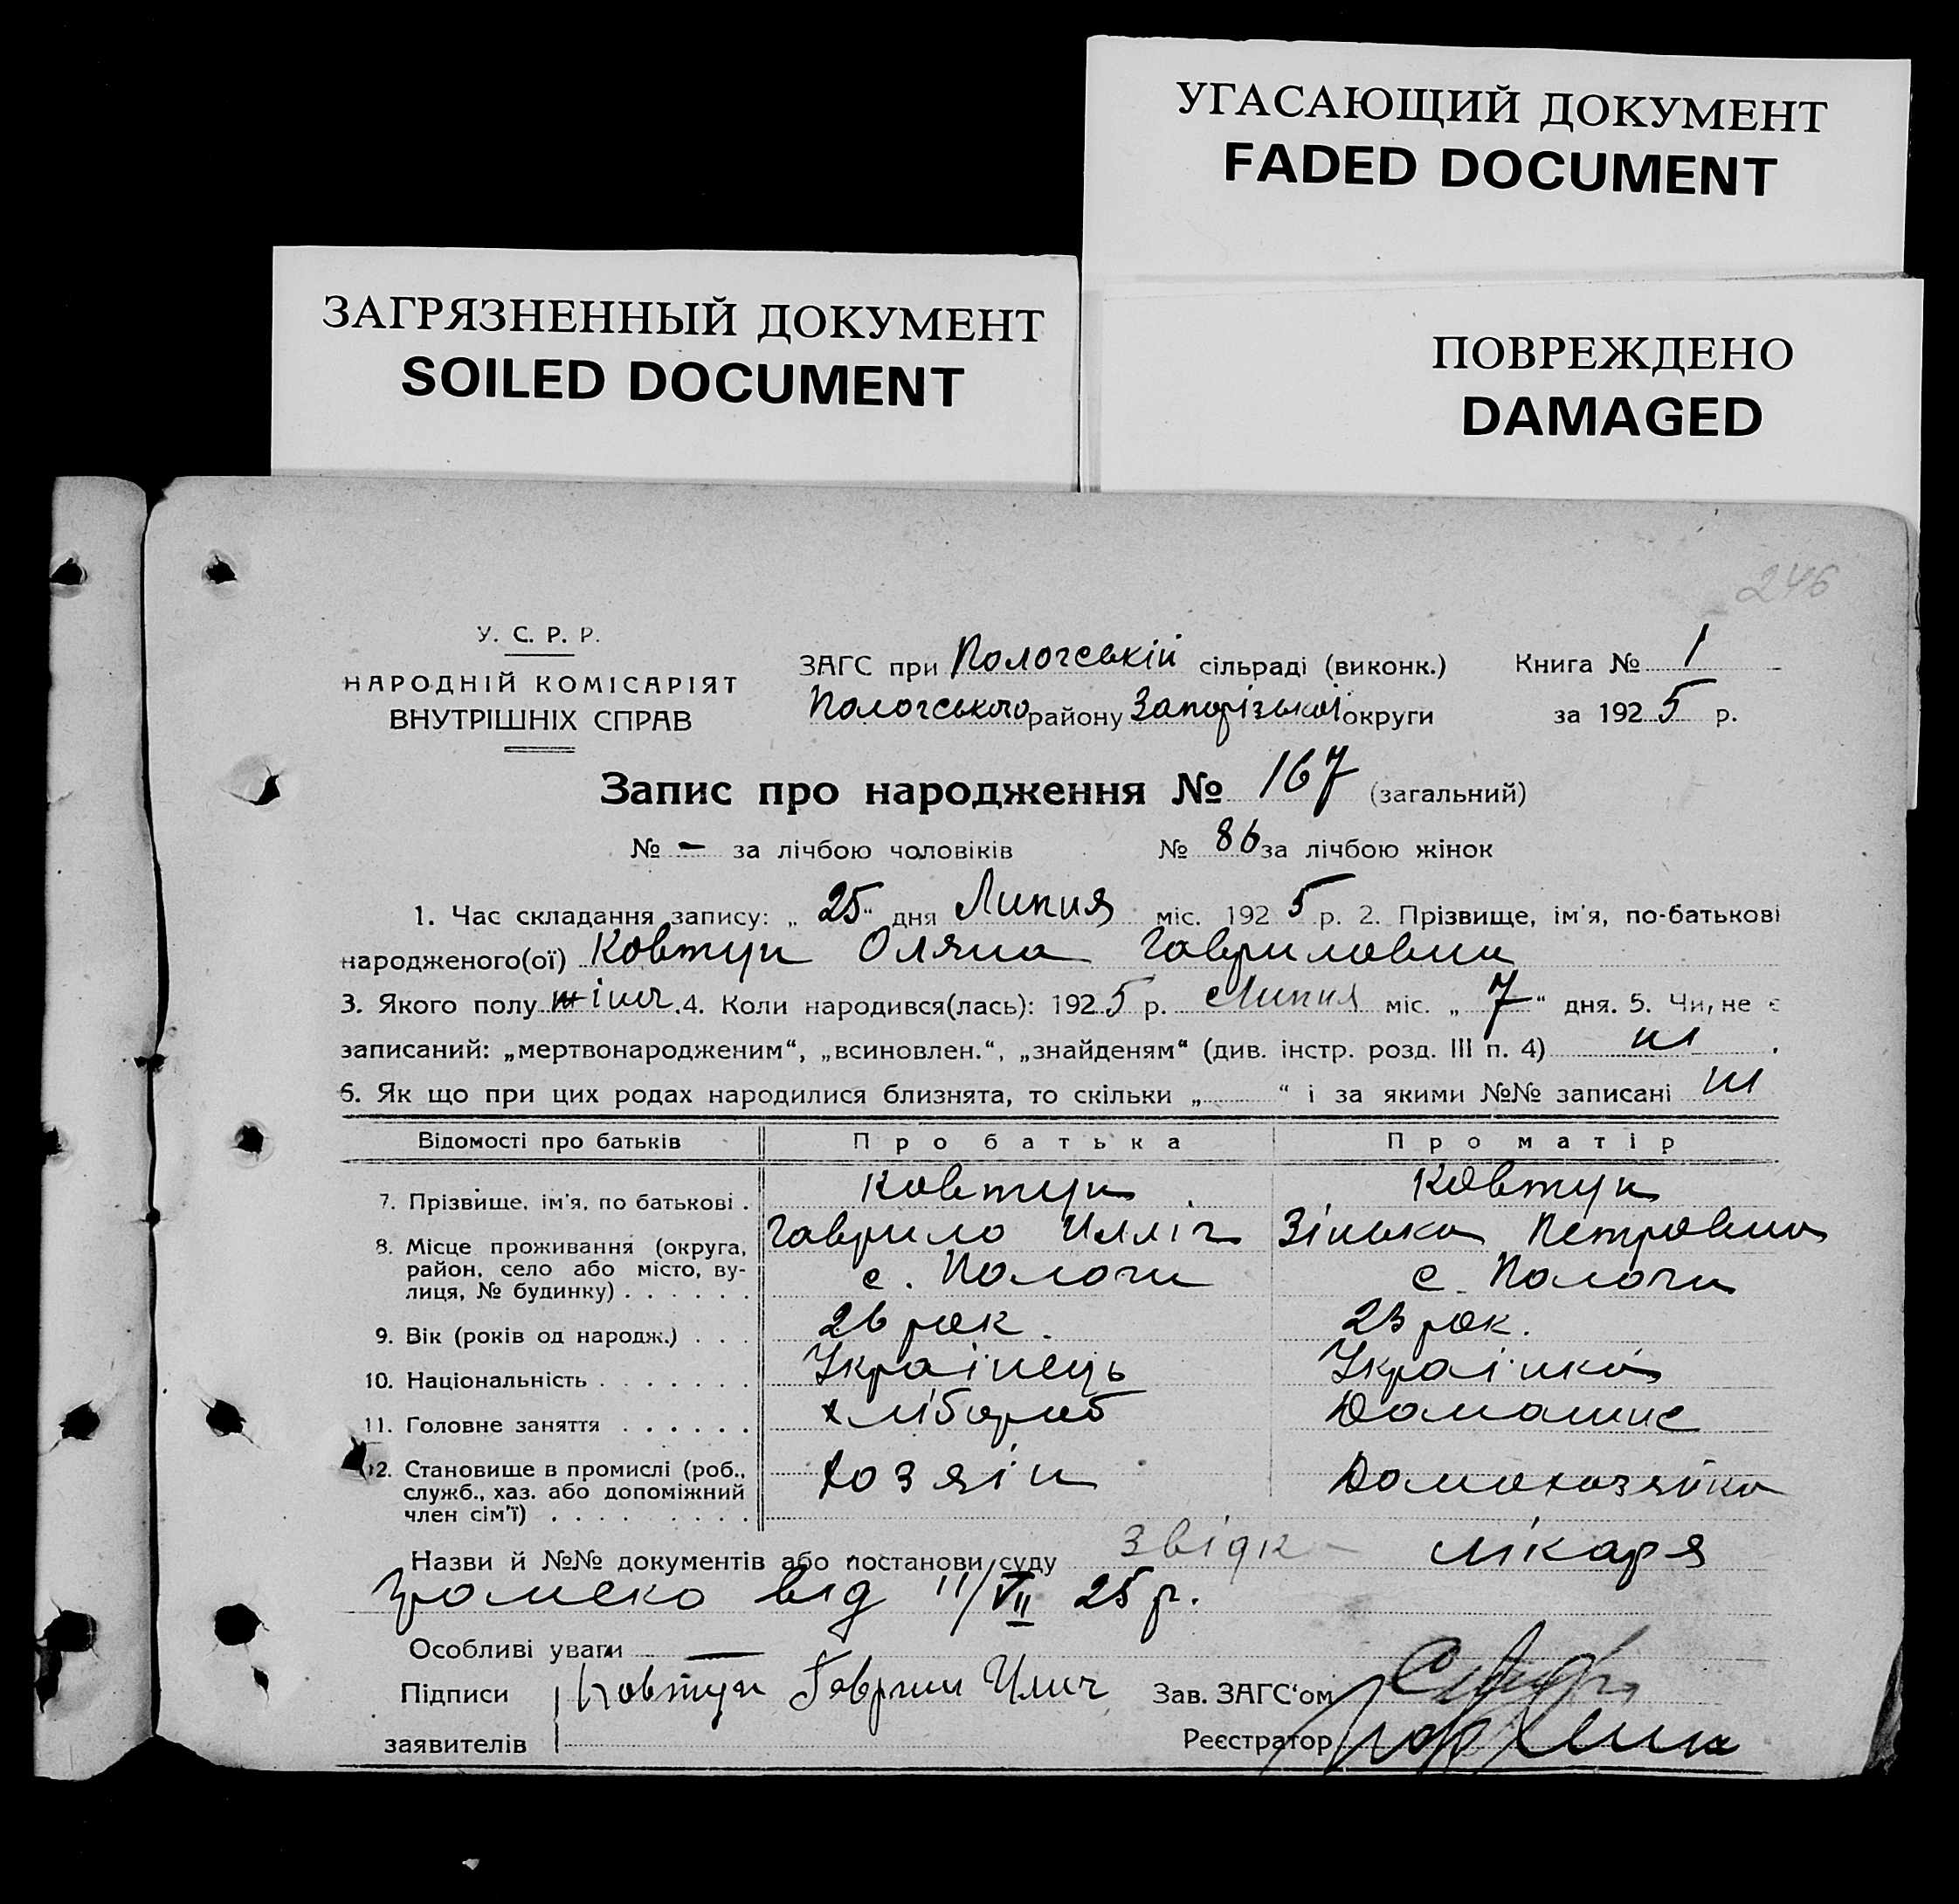 УГАСАЮЩИЙ ДОКУМЕНТ
FADED DOCUMENT
ЗАГРЯЗНЕННЫЙ ДОКУМЕНТ
SOILED DOCUMENT
ПОВРЕЖДЕНО
DAMAGED
246
У. С. Р. Р.
НАРОДНІЙ КОМІСАРІЯТ
ВНУТРІШНІХ СПРАВ
ЗАГС при Пологській сільраді (виконк.) Книга № 1
Пологського району Запорізької округи за 1925 р.
Запис про народження № 167 (загальний)
№ - за лічбою чоловіків № 86 за лічбою жінок
1. Час складання запису: „ 25 " дня Липня міс. 1925 р. 2. Прізвище, ім'я, по-батькові
народженого(ої) Ковтун Оляна Гавриловна
3. Якого полу жіноч. 4. Коли народився(лась): 1925 р. Липня міс. „ 7 " дня. 5. Чи, не є
записаний: „мертвонародженим", „всиновлен.", „знайденям" (див. інстр. розд. III п. 4) ні.
6. Як що при цих родах народилися близнята, то скільки „ " і за якими №№ записані ні
Відомості про батьків Про батька Про матір
7. Прізвище, ім'я, по батькові . Ковтун Ковтун
Гаврило Илліч Зінька Петровна
8. Місце проживання (округа, район, село або місто, ву-
лиця, № будинку) . . . . . . с. Пологи с. Пологи
9. Вік (років од народж.) . . . 26 рок. 23 рок.
10. Національність . . . . . . . Українець Українка
11. Головне заняття . . . . . . хлібороб Домашнє
12. Становище в промислі (роб.,
служб., хаз. або допоміжний
член сім'ї) . . . . . . . . . хозяін Домохозяйка
Назви й №№ документів або постанови суду звідка лікаря
від 11/VII 25 р.
Особливі уваги —
Підписи Ковтун Гаврило Илич Зав. ЗАГС'ом
заявителів Реєстратор